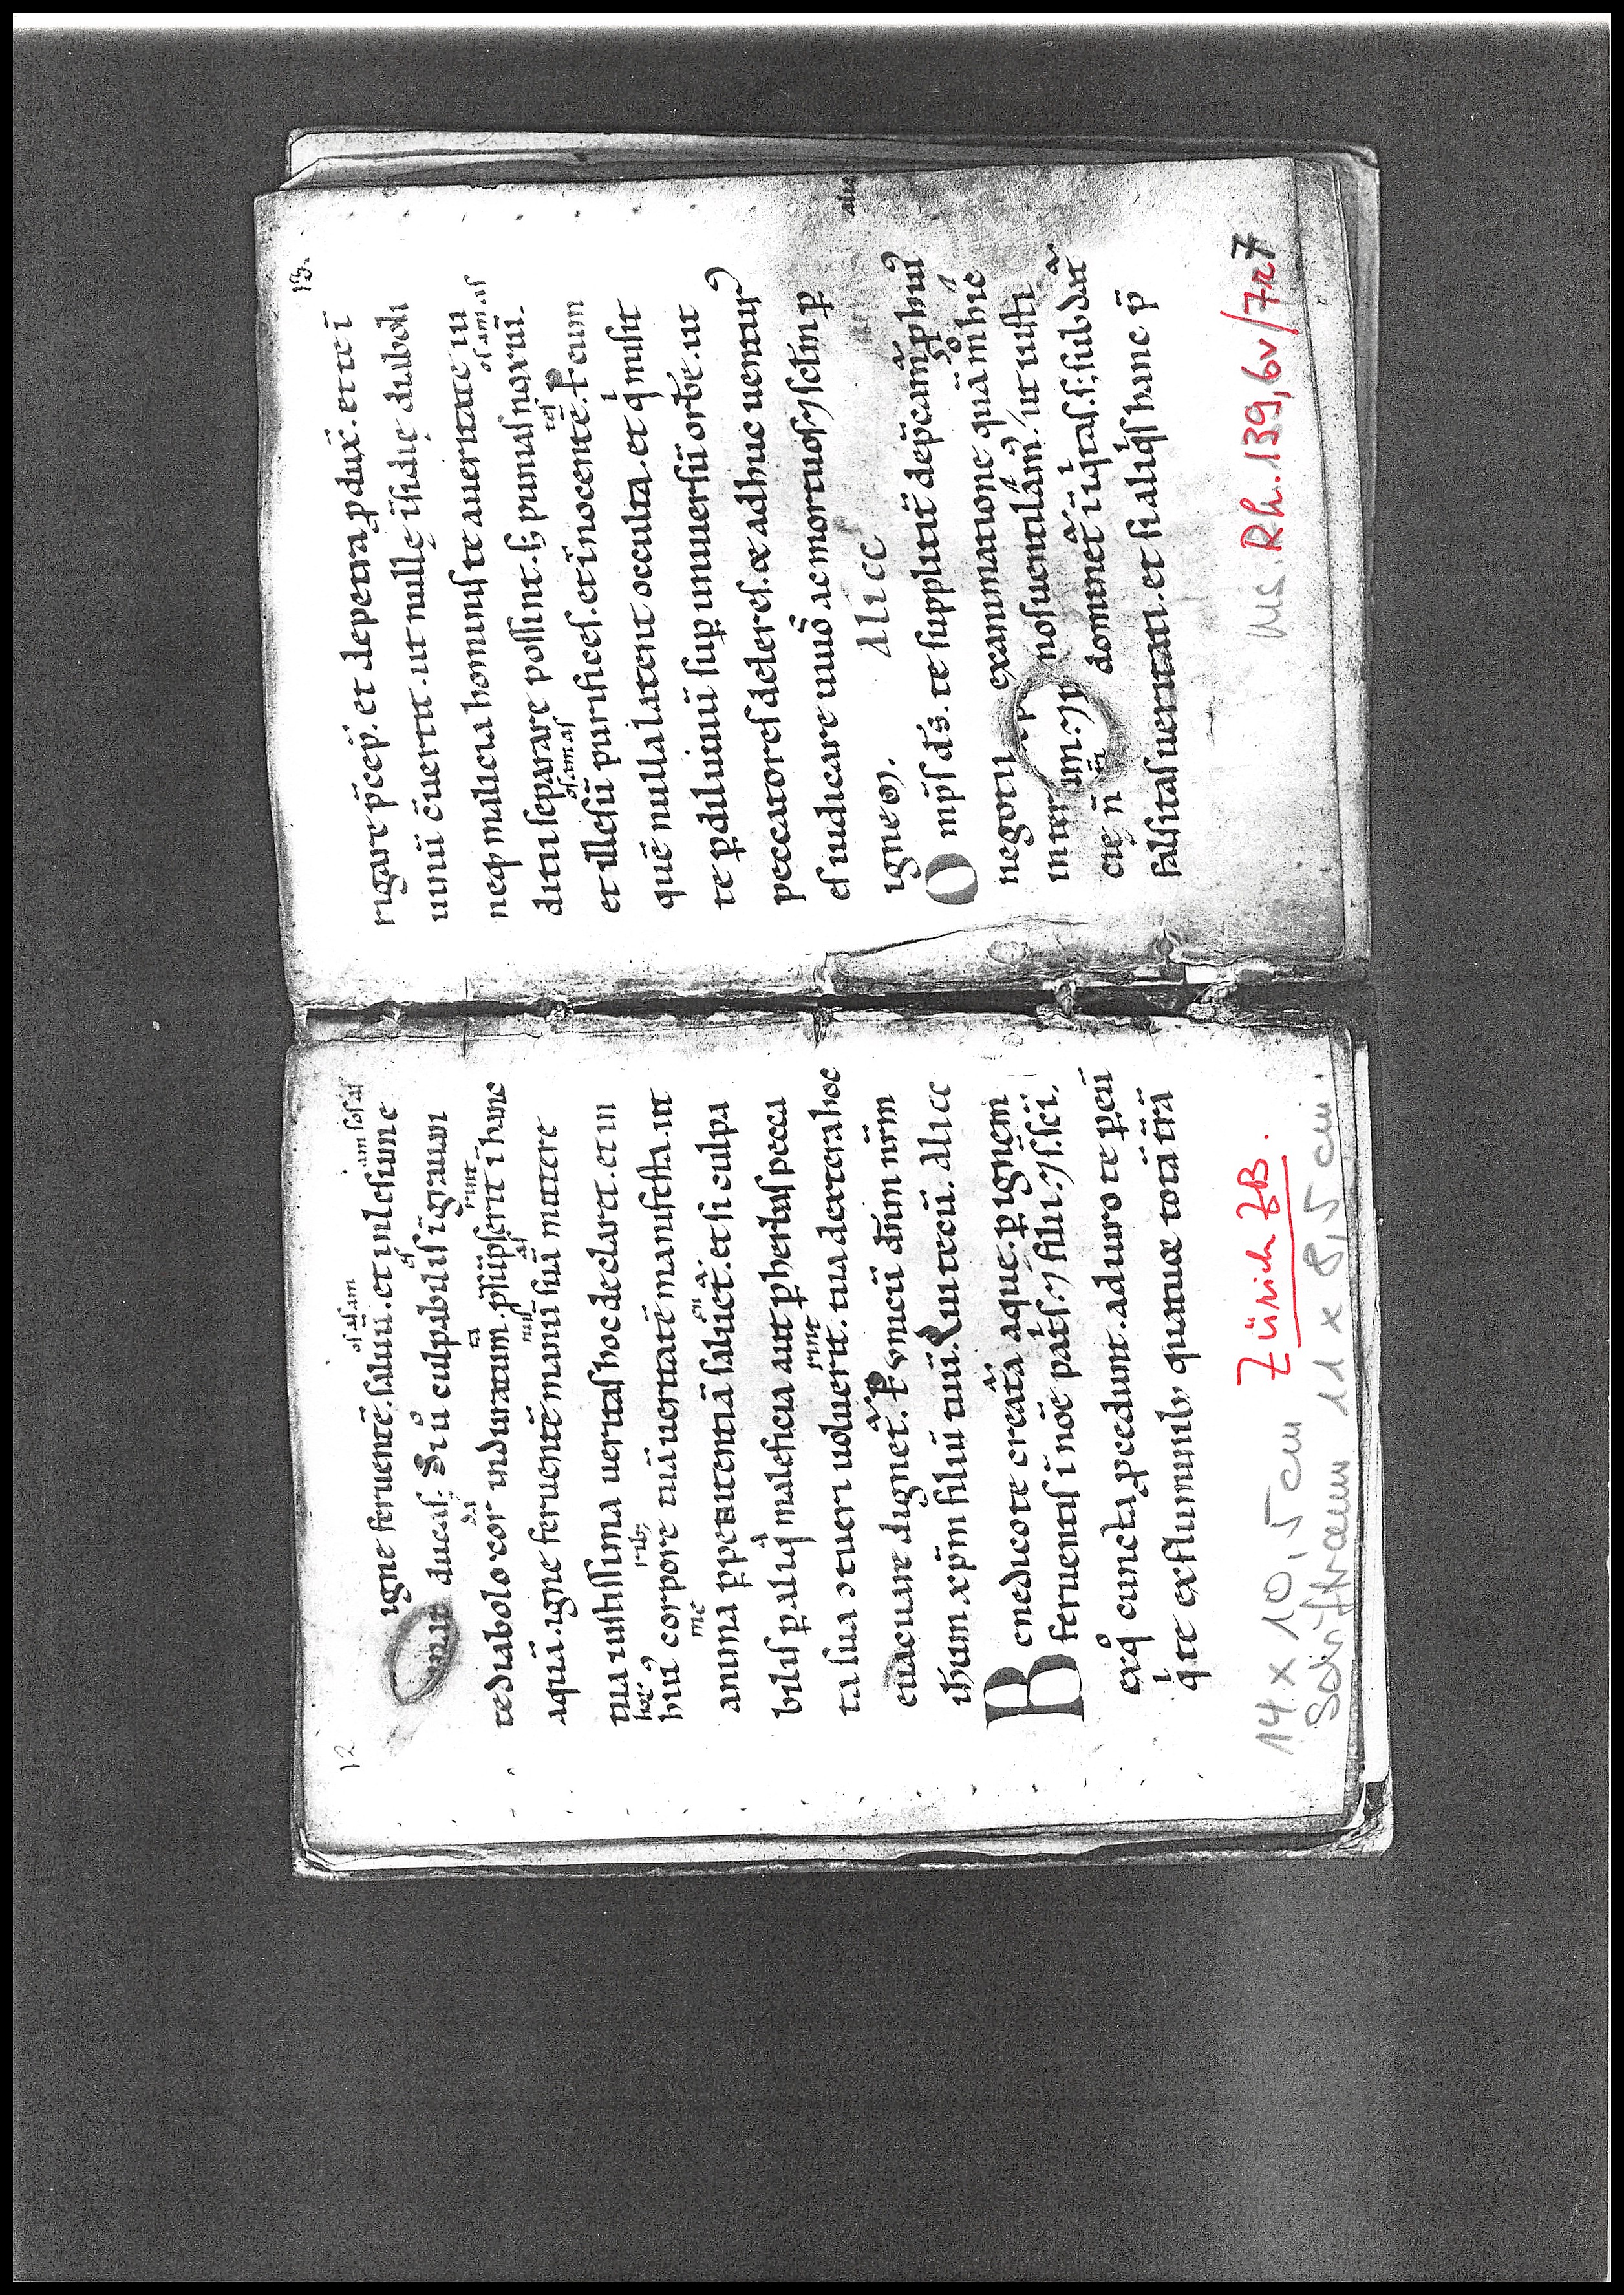 12
os as am am sos as
igne feruentē. saluū. et inlesum e
os
ducas. Si ů culpabilis ĩgrauum
da ta rint
te diabolo cor induratum. p̄sũpserit ĩ hanc
nus as
aquā. igne feruentē manū suā mittere
tua iustissima ueritas hoc declaret. et in
hoc rib;
huiꝰ corpore tuā ueritatē manifesta. ut
me en a
anima p penitentiā saluet᷑. et si culpa
bilis ꝑ aliq̊ maleficia aut ꝑ herbas pecca
rint
ta sua ↄtueri uoluerit. tua dextera hoc
euacuare dignet᷑. P unicū dn̄m nr̄m
ih̄um xp̄m filiū tuū. Qui tecū. Alia
Benedico te creat᷑a aque. ꝑ ignem
feruentis ĩ nōe pat͛s. ⁊ filii. ⁊ s̄. sc̄i.
ex q̊ cuncta ꝓcedunt. adiuro te ꝑ eū
q te ex fluminib; quatuor totā t͛rā
14 x 10,5 cm Zürich ZB.
Schriftraum 11 x 8,5 cm.
13.
rigare p̄cep̄. et de petra ꝓdux̄. et te ĩ
uinū c̄uertit. ut nullę ĩsidię diaboli
neq; malicia hominis te a ueritate iu
os am as
dicii separare possint. s; punias noxiū.
os am as tes
et illesū purifices. et ĩnocentē. P eum
quē nulla latent occulta. et q misit
te ꝑ diluuiū sup uniuersū orbē. ut
peccatores deleres. & adhuc uenturꝰ
es iudicare uiuos ac mortuos ⁊ sclm̄ ꝑ
ignem. Alia
Omp̄s ds̄. te suppliciť dep̄camꝰ ꝓ huiꝰ
negotii examinatione quā m̊ hic
inter nos uentilamꝰ. ut iusti
cię n̄ dominet᷑ iniq̇tas. s; subdat᷑
falsitas ueritati. et si aliq̇s hanc p̄
Ms. Rh. 139, 6v/7r 7